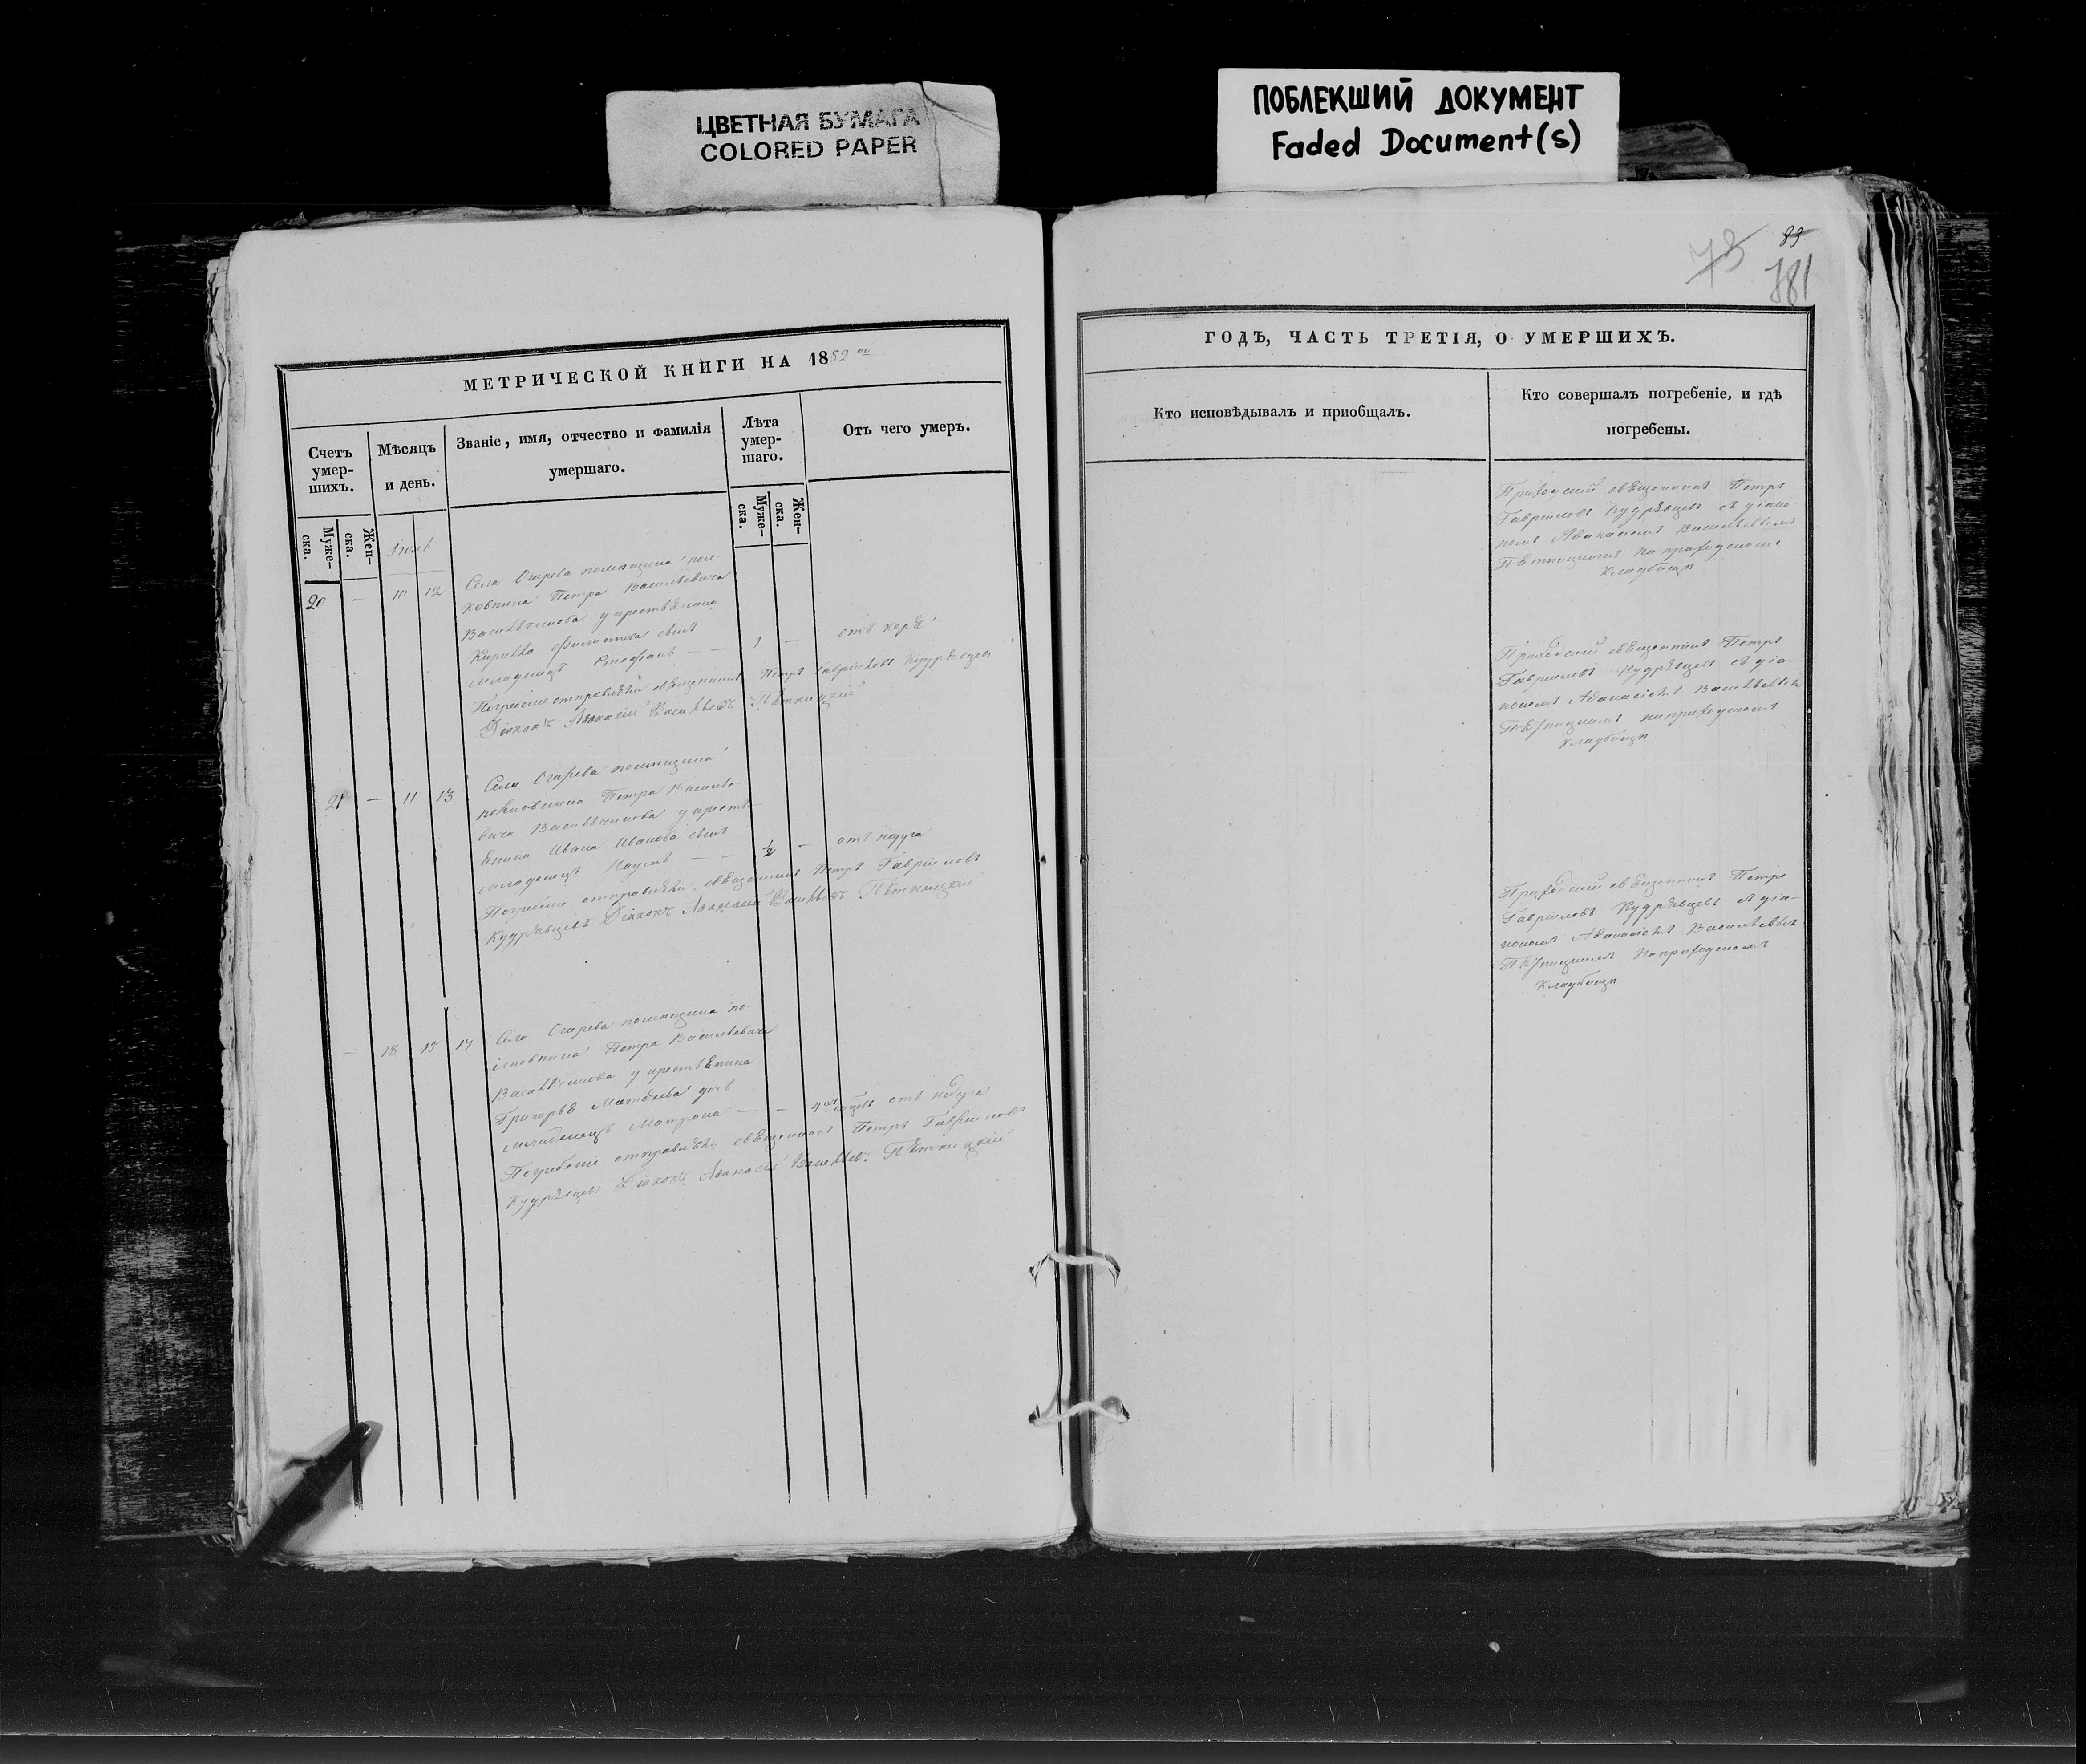 ЦВЕТНАЯ БУМАГА
COLORED PAPER
ПОБЛЕКШИЙ ДОКУМЕНТ
Faded Document(s)
МЕТРИЧЕСКОЙ КНИГИ НА 1852
Счетъ умер-
шихъ.
Мѣсяцъ
и день.
Званіе, имя, отчество и фамилія
умершаго.
Лѣта
умер-
шаго.
Отъ чего умеръ.
Муже-
ска.
Жен-
ска.
Муже-
ска.
Жен-
ска.
20 — 10 12 Села Огарева помѣщика пол-
ковника Петра Васильевича
Васильчикова у крестьянина
Филиппова сынъ
младенецъ Стефанъ — — 1 — отъ кори
Погребеніе отправляли священникъ Петръ Гавриловъ Кудрявцевъ
Діаконъ Аѳанасій Васильевъ Пѣтницкій
21 — 11 13 Села Огарева помѣщика
полковника Петра Василье-
вича Васильчикова у кресть-
янина Ивана Иванова сынъ
младенецъ Наумъ — — ½ — отъ недуга
Погребеніе отправляли священникъ Петръ Гавриловъ
Кудрявцевъ Діаконъ Аѳанасій Васильевъ Пѣтницкій
— 18 15 17 Села Огарева помѣщика по-
лковника Петра Васильевича
Васильчикова у крестьянина
Григорья Матвѣева дочь
младенецъ Матрона — — отъ недуга
Погребеніе отправляли священникъ Петръ Гавриловъ
Кудрявцевъ Діаконъ Аѳанасій Васильевъ Пѣтницкій
73 83
181
ГОДЪ, ЧАСТЬ ТРЕТІЯ, О УМЕРШИХЪ.
Кто исповѣдывалъ и пріобщалъ.
Кто совершалъ погребеніе, и гдѣ
погребены.
Приходскій священникъ Петръ
Гавриловъ Кудрявцевъ съ діако-
номъ Аѳанасіемъ Васильевымъ
Пѣтницкимъ на приходскомъ
кладбищѣ
Приходскій священникъ Петръ
Гавриловъ Кудрявцевъ съ діа-
кономъ Аѳанасіемъ Васильевымъ
Пѣтницкимъ на приходскомъ
кладбищѣ
Приходскій священникъ Петръ
Гавриловъ Кудрявцевъ съ діа-
кономъ Аѳанасіемъ Васильевымъ
Пѣтницкимъ на приходскомъ
кладбищѣ